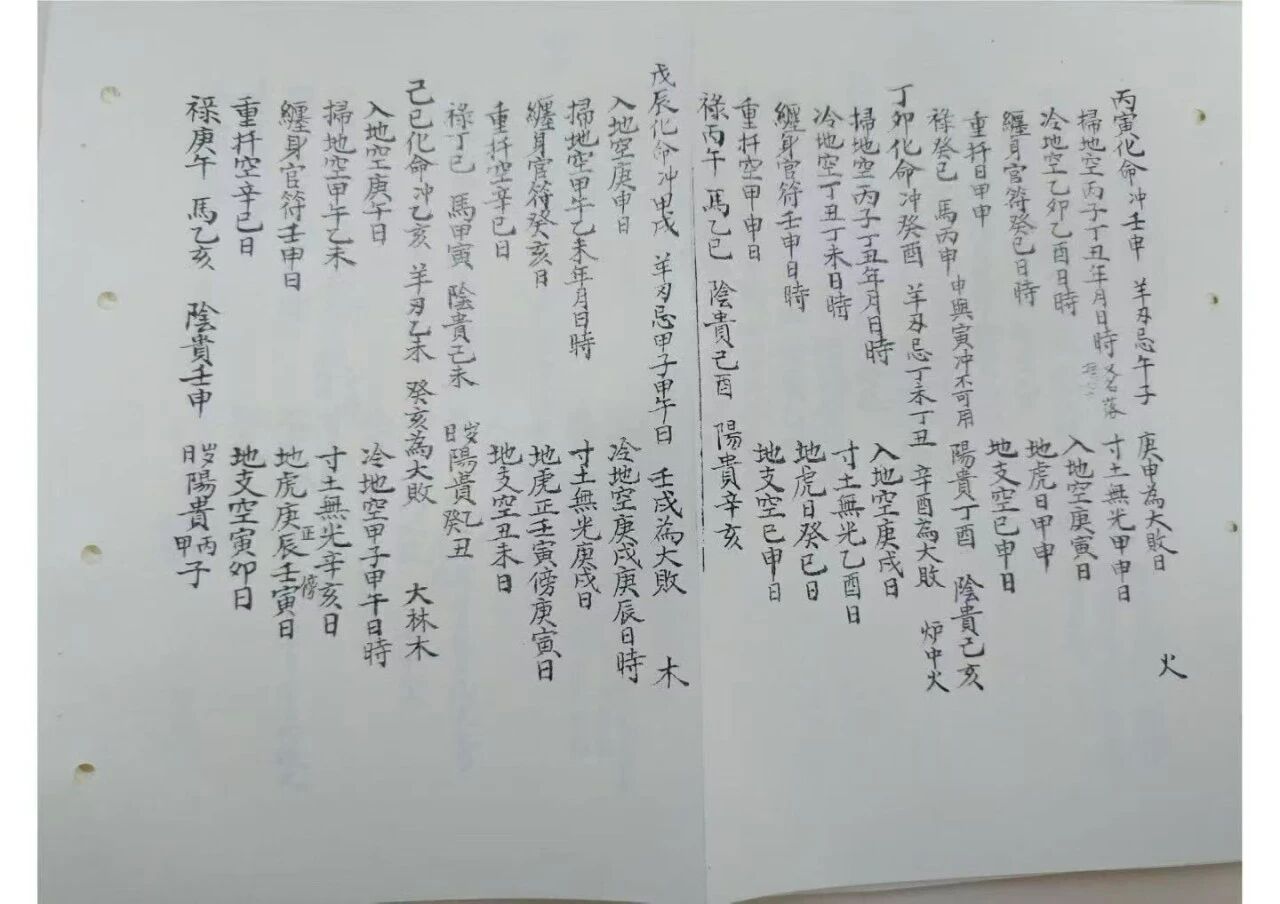 丙寅化命冲壬申 羊刃忌午子 庚申為大敗日 火
掃地空丙子丁丑年月日時 又名落 寸土無光甲申日
冷地空乙卯乙酉日時 入地空庚寅日
纏身官符癸巳日時 地虎日甲申
重扦日甲申 地支空巳申日
祿癸巳 馬丙申 申與寅冲不可用 陽貴丁酉 陰貴己亥
丁卯化命冲癸酉 羊刃忌丁未丁丑 辛酉為大敗 炉中火
掃地空丙子丁丑年月日時 入地空庚戌日
冷地空丁丑丁未日時 寸土無光乙酉日
纏身官符壬申日時 地虎日癸巳日
重扦空甲申日 地支空巳申日
祿丙午 馬乙巳 陰貴己酉 陽貴辛亥
戊辰化命冲甲戌 羊刃忌甲子甲午日 壬戌為大敗 木
入地空庚申日 冷地空庚戌庚辰日時
掃地空甲午乙未年月日時 寸土無光庚戌日
纏身官符癸亥日 地虎正壬寅傍庚寅日
重扦空辛巳日 地支空丑未日
祿丁巳 馬甲寅 陰貴己未 陽貴乙癸丑
己巳化命冲乙亥 羊刃乙未 癸亥為大敗 大林木
入地空庚午日 冷地空甲子甲午日時
掃地空甲午乙未 寸土無光辛亥日
纏身官符壬申日 地虎庚辰正壬寅傍日
重扦空辛巳日 地支空寅卯日
祿庚午 馬乙亥 陰貴壬申 陽貴丙甲子